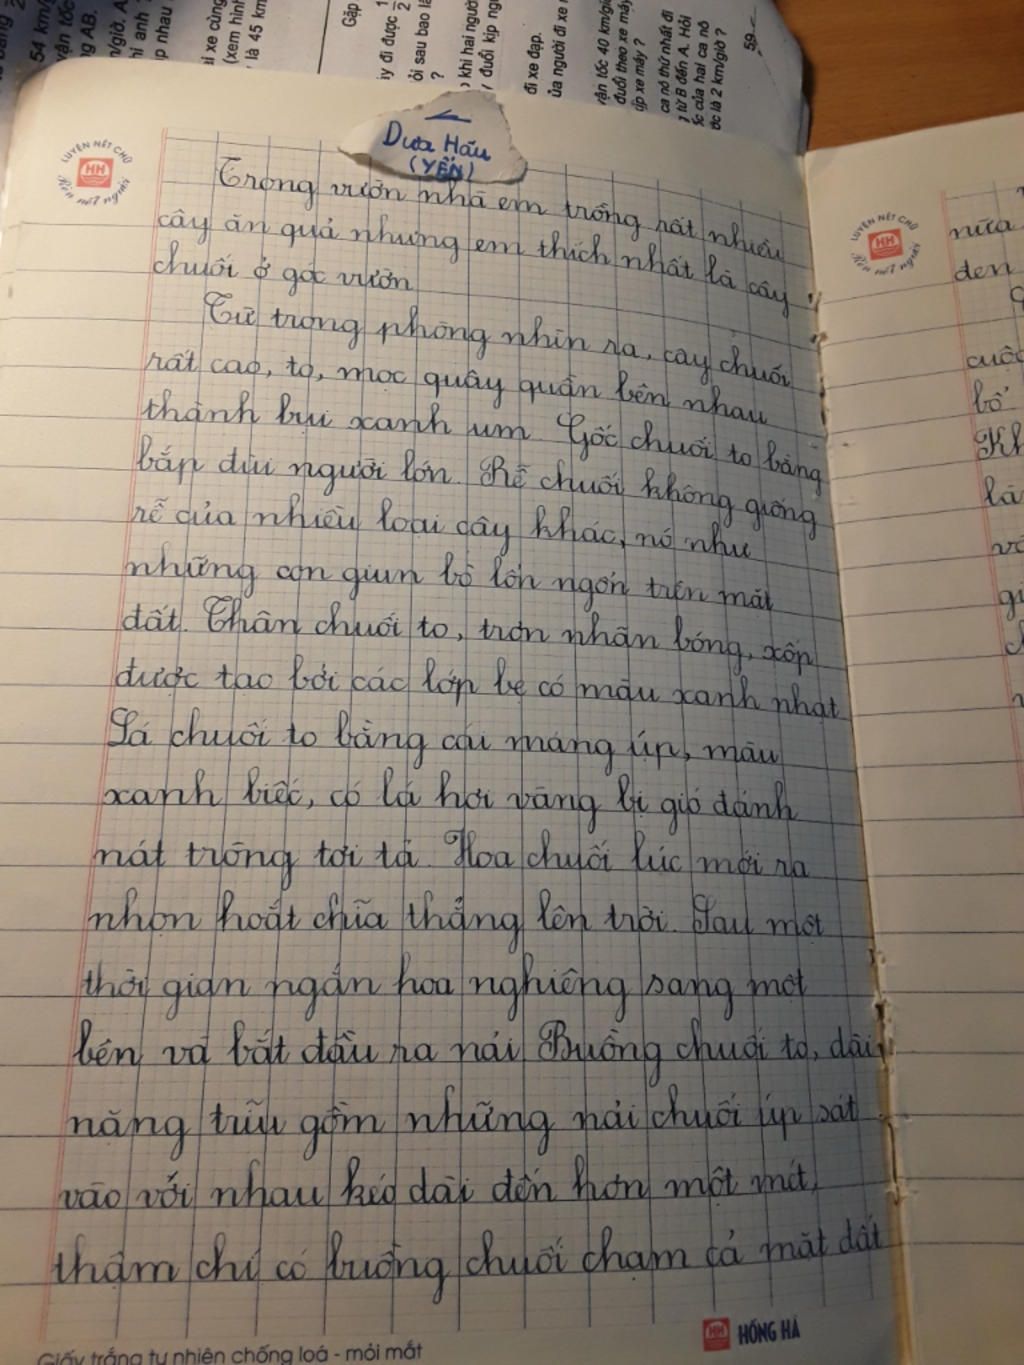 54 km/g
vận tốc
ng AB.
m/giờ. A
hi anh
p nhau
ai xe cùng
(xem hình
là 45 km
Gặp
ày đi được 1/2
ỏi sau bao lâ
?
khi hai ngườ
đuổi kịp ngu
đi xe đạp.
ủa người đi xe
vận tốc 40 km/giờ
đuổi theo xe máy
ịp xe máy ?
ca nô thứ nhất đi
từ B đến A. Hỏi
ốc của hai ca nô
ớc là 2 km/giờ ?
59
LUYỆN NÉT CHỮ
HH
Rèn nết người
Dưa Hấu
(YẾN)
Trong vườn nhà em trồng rất nhiều
cây ăn quả nhưng em thích nhất là cây
chuối ở góc vườn
Từ trong phòng nhìn ra, cây chuối
rất cao, to, mọc quây quần bên nhau
thành bụi xanh um. Gốc chuối to bằng
bắp đùi người lớn. Rễ chuối không giống
rễ của nhiều loại cây khác, nó như
những con giun bò lổn ngổn trên mặt
đất. Thân chuối to, trơn nhẵn bóng, xốp
được tạo bởi các lớp bẹ có màu xanh nhạt
Lá chuối to bằng cái máng úp, màu
xanh biếc, có lá hơi vàng bị gió đánh
nát trông tơi tả. Hoa chuối lúc mới ra
nhọn hoắt chĩa thẳng lên trời. Sau một
thời gian ngắn hoa nghiêng sang một
bên và bắt đầu ra nải. Buồng chuối to, dài,
nặng trĩu gồm những nải chuối úp sát
vào với nhau kéo dài đến hơn một mét,
thậm chí có buồng chuối chạm cả mặt đất
HH HỒNG HÀ
Giấy trắng tự nhiên chống loá - mỏi mắt
LUYỆN NÉT CHỮ
HH
Rèn nết người
nữa
đen
cuộc
bổ
Kh
là
gi